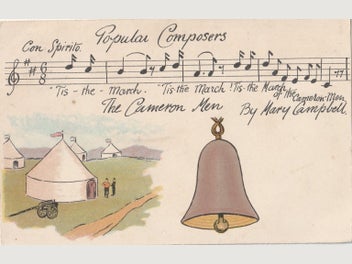 Popular Composers
Con Spirito.
6 8
"Tis - the - March. "Tis the March! 'Tis the March of the Cameron Men
The Cameron Men
By Mary Campbell.